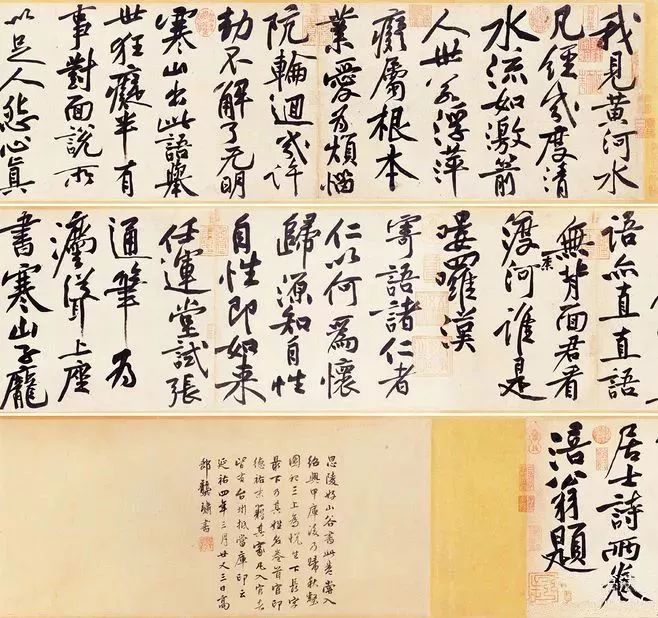 我見黃河水
凡經幾度清
水流如激箭
人世若浮萍
癡屬根本
業愛為煩惱
阬輪迴幾許
劫不解了无明
寒山出此語舉
世狂癡半有
事對面說所
以足人怨心真
語亦直直語
無背面君看
渡奈河誰是
嘍羅漢
寄語諸仁者
仁以何為懷
歸源知自性
自性即如來
任運堂試張
通筆為
灋聳上座
書寒山子龐
居士詩兩卷
涪翁題
思陵好山谷書此卷嘗入
紹興甲庫後乃歸秋壑
圖記三上為悅生下長字
最下乃其姓名卷首官印
德祐末籍其家尽入官者
皆有台州抵當庫印云
延祐四年三月廿又三日高
郵龔璛書